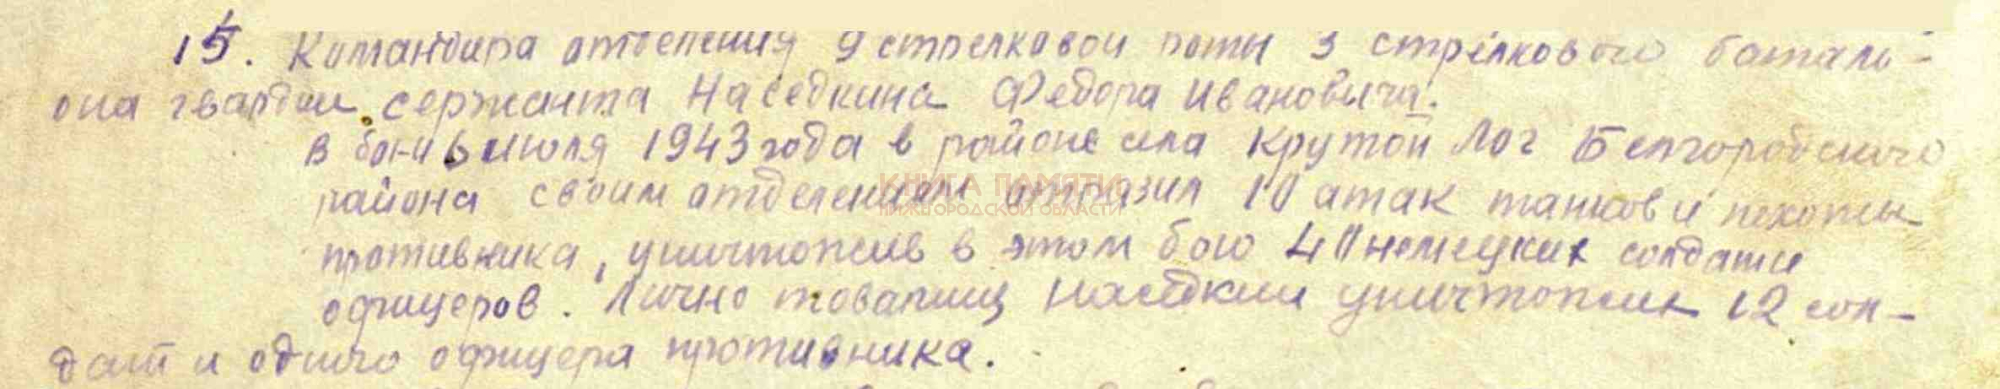 15. Командира отделения 9 стрелковой роты 3 стрелкового батали-
она гвардии сержанта Наседкина Федора Ивановича.
В бою 6 июля 1943 года в районе села Крутой Лог Белгородского
района своим отделением отразил 10 атак танков и пехоты
КНИГА ПАМЯТИ
НИЖЕГОРОДСКОЙ ОБЛАСТИ
противника, уничтожив в этом бою 40 немецких солдат и
офицеров. Лично товарищ Наседкин уничтожил 12 сол-
дат и одного офицера противника.